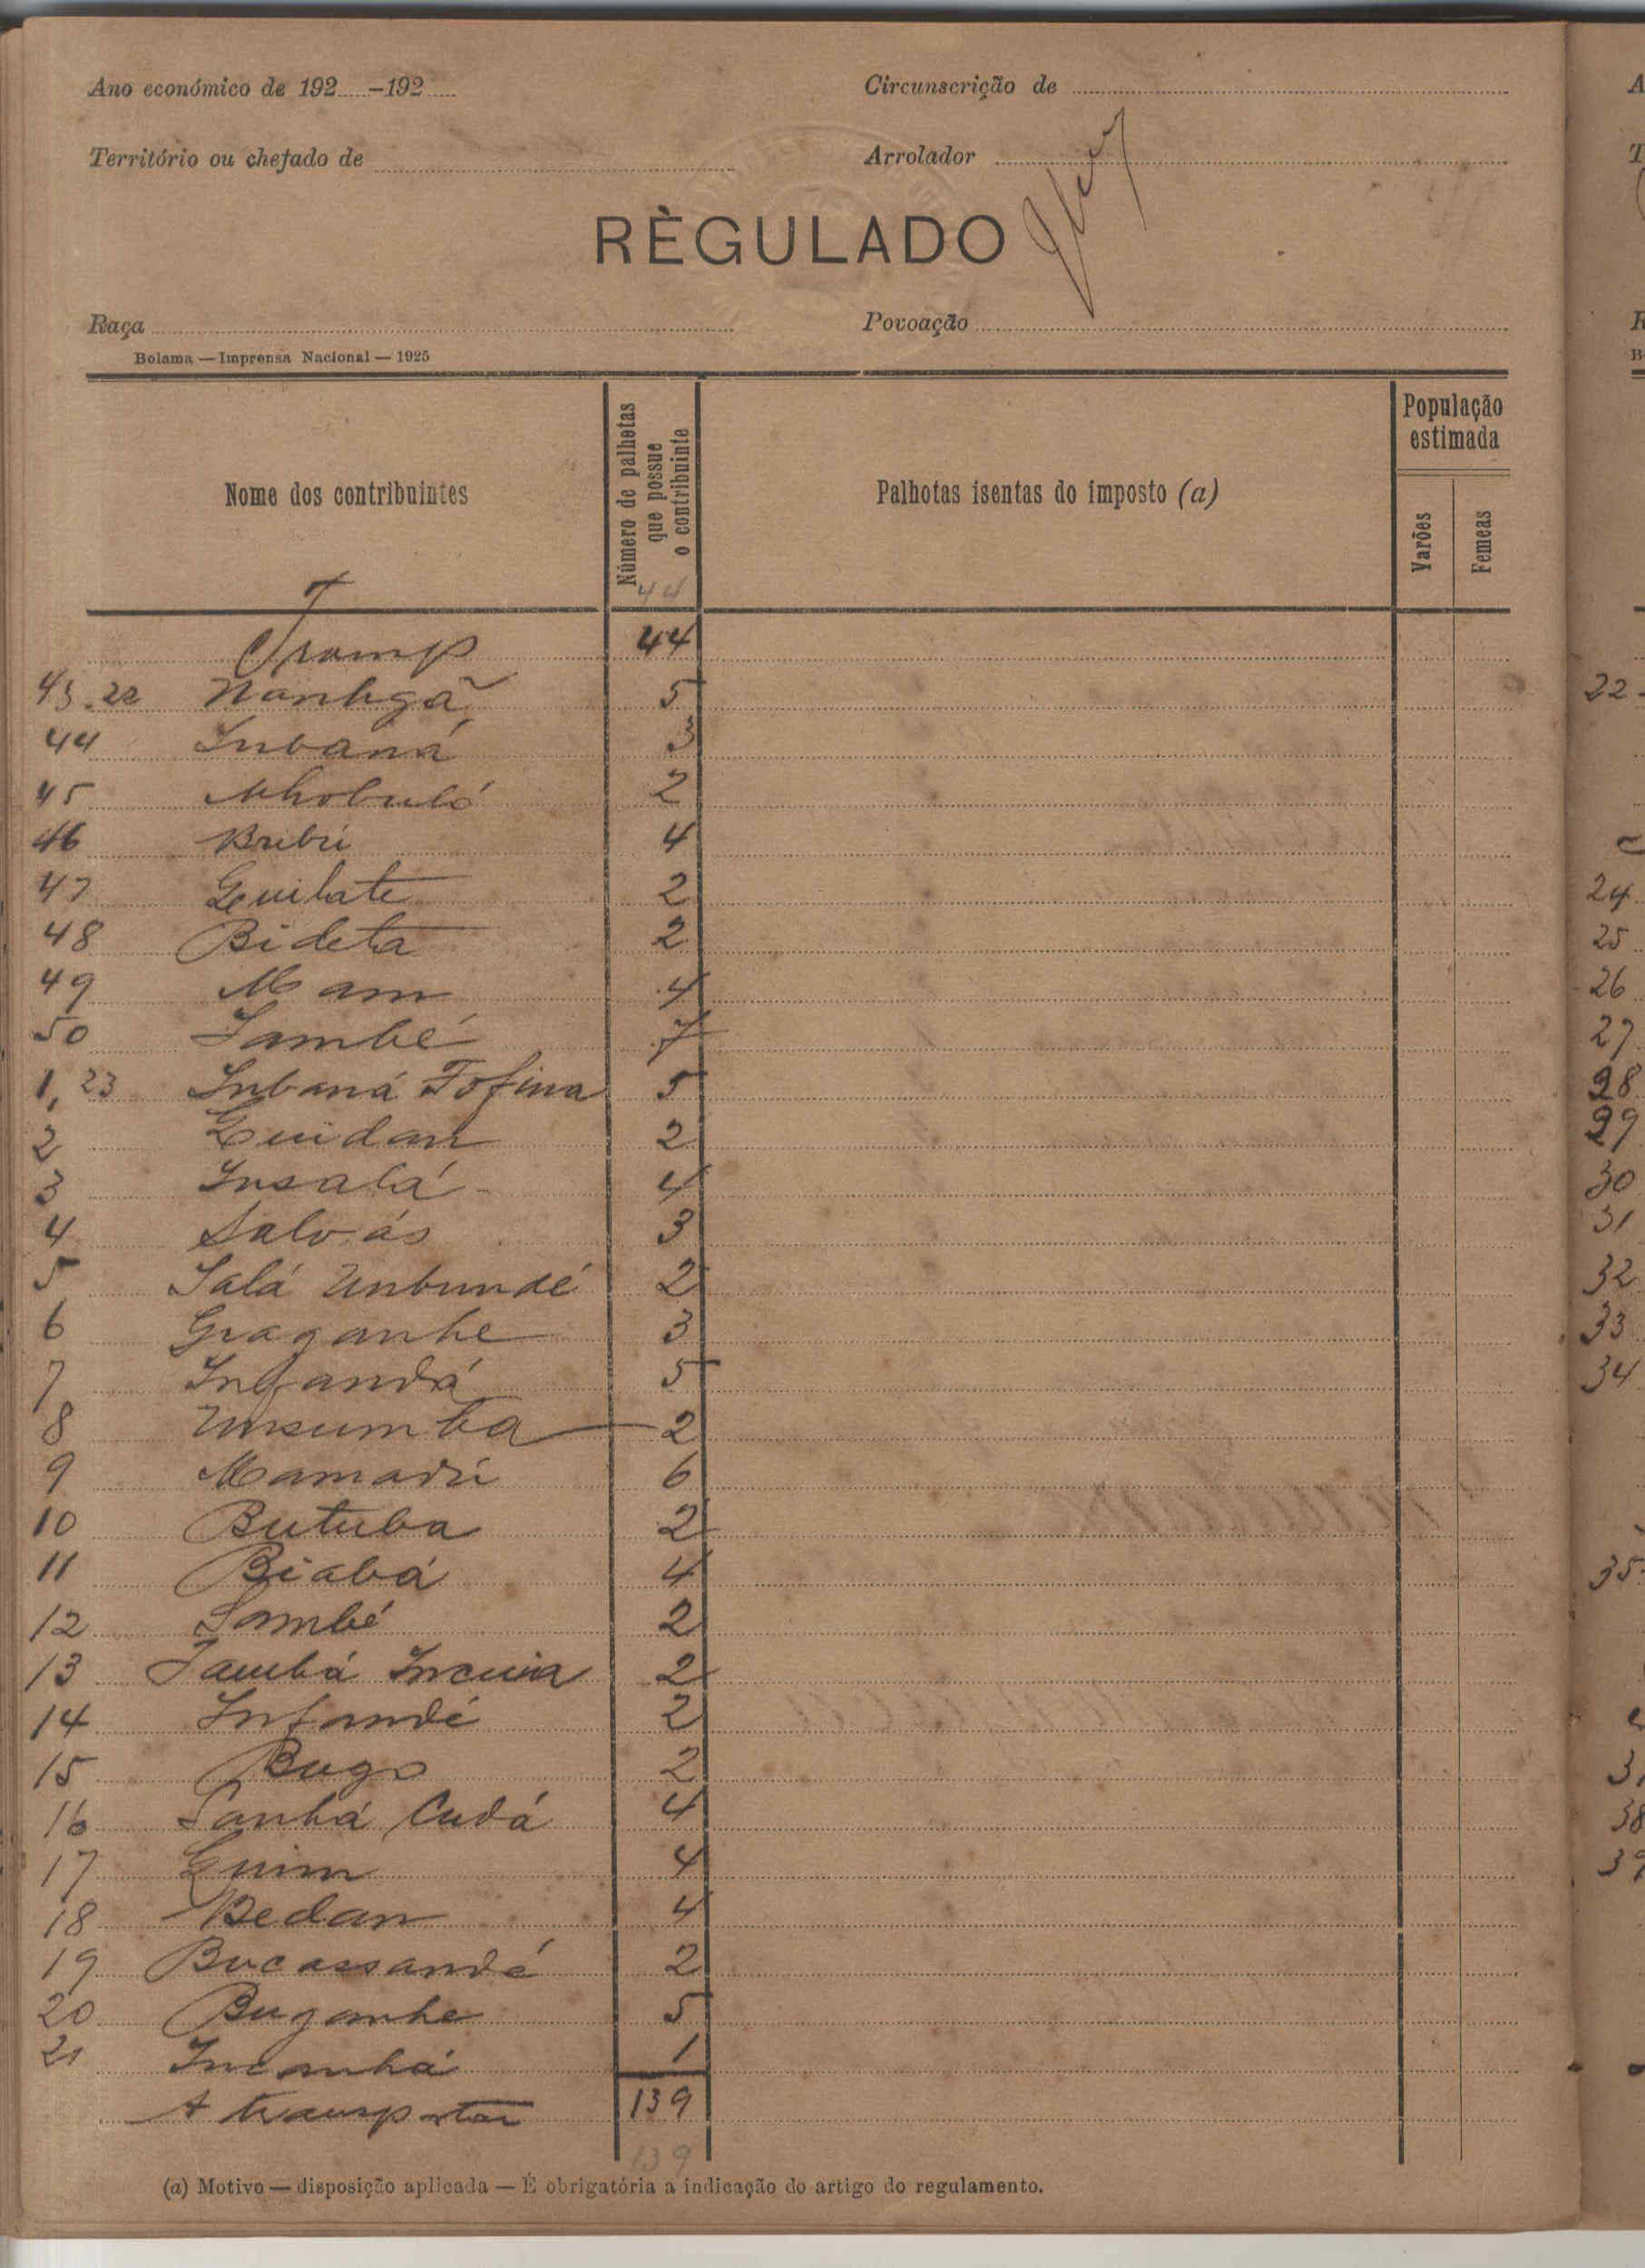 Ano económico de 192.....-192.....
Circunscrição de
Território ou chefado de
Arrolador
RÈGULADO
Raça
Povoação
Bolama — Imprensa Nacional — 1925
Nome dos contribuintes
Número de palhotas que possue o contribuinte
Palhotas isentas do imposto (a)
População estimada
Varões
Femeas
44
Transp 44
43.22 Nanhgã 5
44 Inbaná 3
45 Nhobuló 2
46 Bribú 4
47 Guibate 2
48 Bideta 2
49 Mam 4
50 Sambé 7
1,23 Inbaná Fofina 5
2 Guidan 2
3 Insalá 4
4 Salvás 3
5 Salá Unbundé 2
6 Graganhe 3
7 Infandá 5
8 Unsumba 2
9 Mamadú 6
10 Butuba 2
11 Biabá 4
12 Sambé 2
13 Tambá Incuia 2
14 Infandé 2
15 Bugo 2
16 Sanhá Cudá 4
17 Guim 4
18 Bedan 4
19 Bucassandé 2
20 Buganhe 5
21 Incanhá 1
A transportar 139
139
(a) Motivo — disposição aplicada — É obrigatória a indicação do artigo do regulamento.
22
24
25
26
27
28
29
30
31
32
33
34
35
38
39